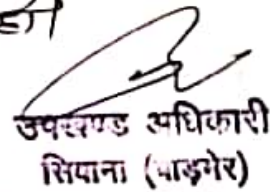 हो।
उपखण्ड अधिकारी
सिवाना (बाड़मेर)